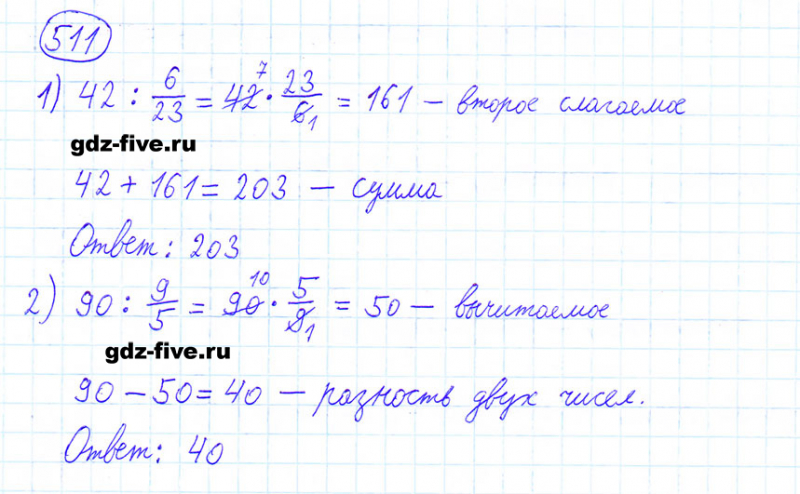 511
1) 42 : 6/23 = 42 7 · 23/6 1 = 161 – второе слагаемое
gdz-five.ru
42 + 161 = 203 – сумма
Ответ: 203
2) 90 : 9/5 = 90 10 · 5/9 1 = 50 – вычитаемое
gdz-five.ru
90 – 50 = 40 – разность двух чисел.
Ответ: 40